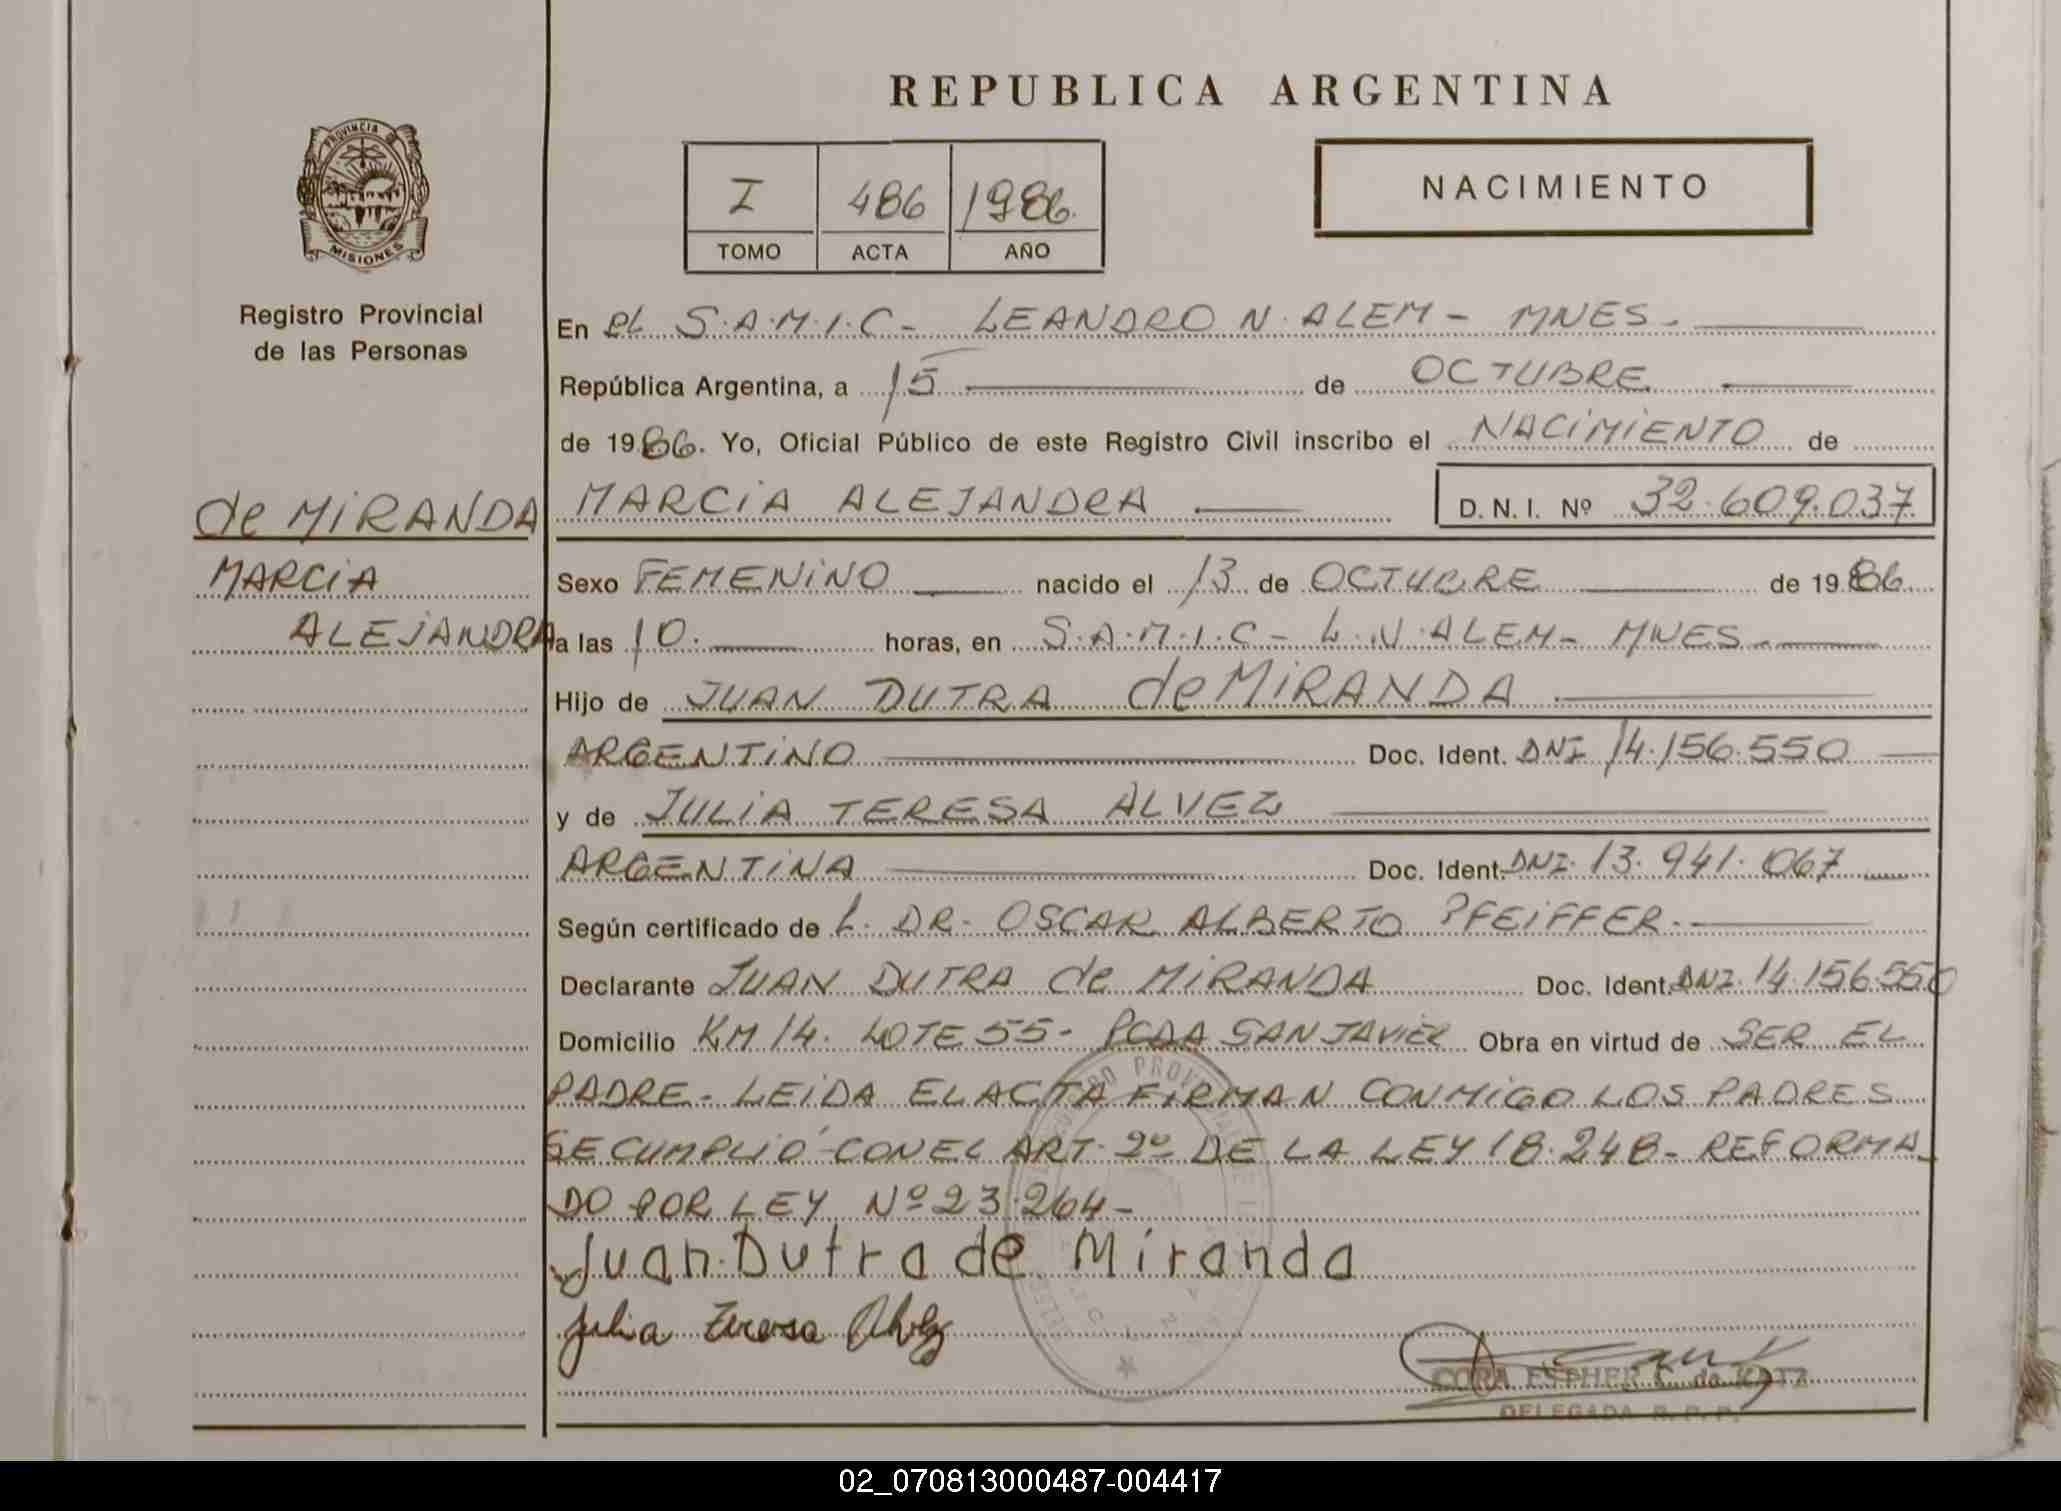 REPUBLICA ARGENTINA
PROVINCIA DE
MISIONES
Registro Provincial
de las Personas
I 486 1986.
TOMO ACTA AÑO
NACIMIENTO
En el S.A.M.I.C- LEANDRO N. ALEM- MNES.
República Argentina, a 15 de OCTUBRE
de 1986. Yo, Oficial Público de este Registro Civil inscribo el NACIMIENTO de
de MIRANDA
MARCIA
ALEJANDRA
MARCIA ALEJANDRA D. N. I. Nº 32.609.037
Sexo FEMENINO nacido el 13 de OCTUBRE de 1986
a las 10. horas, en S.A.M.I.C- L.N.ALEM- MNES.
Hijo de JUAN DUTRA de MIRANDA
ARGENTINO Doc. Ident. DNI 14.156.550
y de JULIA TERESA ALVEZ
ARGENTINA Doc. Ident. DNI. 13.941.067
Según certificado de L. DR. OSCAR ALBERTO PFEIFFER.
Declarante JUAN DUTRA de MIRANDA Doc. Ident. DNI. 14.156.550
Domicilio KM 14. LOTE 55- PCDA SAN JAVIER Obra en virtud de SER EL
PADRE- LEIDA EL ACTA FIRMAN CONMIGO LOS PADRES
SE CUMPLIO CON EL ART. 2º DE LA LEY 18.248- REFORMA_
DO POR LEY Nº 23.264-
Juan Dutra de Miranda
Julia Teresa Alvez
CORA ESTHER C. de KATZ
DELEGADA R. P. P.
02_070813000487-004417